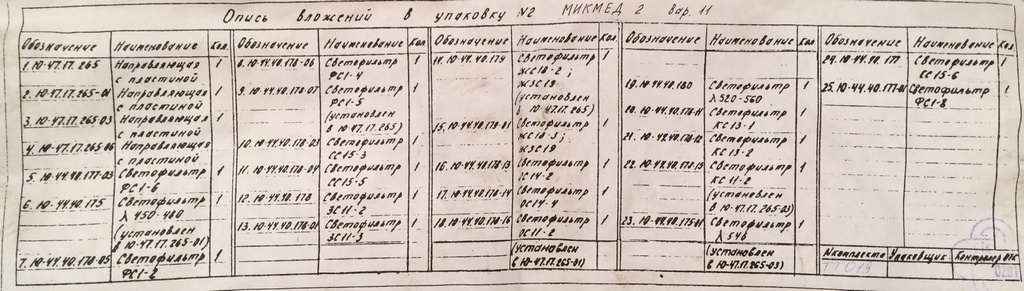 Опись вложений в упаковку №2 МИКМЕД 2 вар. 11
Обозначение Наименование Кол.
1. Ю-47.17.265 Направляющая 1
с пластиной
2. Ю-47.17.265-01 Направляющая 1
с пластиной
3. Ю-47.17.265-03 Направляющая 1
с пластиной
4. Ю-47.17.265-06 Направляющая 1
с пластиной
5. Ю-44.40.178-03 Светофильтр 1
ФС1-6
6. Ю-44.40.175 Светофильтр 1
λ 450-480
(установлен
в Ю-47.17.265-01)
7. Ю-44.40.178-05 Светофильтр 1
ФС1-2
Обозначение Наименование Кол
8. Ю-44.40.178-06 Светофильтр 1
ФС1-4
9. Ю-44.40.178-07 Светофильтр 1
ФС1-5
(установлен
в Ю-47.17.265)
10. Ю-44.40.178-03 Светофильтр 1
СС15-3
11. Ю-44.40.178-04 Светофильтр 1
СС15-5
12. Ю-44.40.178 Светофильтр 1
ЗС11-2
13. Ю-44.40.178-01 Светофильтр 1
ЗС11-3
Обозначение Наименование Кол.
14. Ю-44.40.179 Светофильтр 1
ЖС18-2;
ЖЗС19
(установлен
в Ю-47.17.265)
15. Ю-44.40.179-01 Светофильтр 1
ЖС18-3;
ЖЗС19
16. Ю-44.40.178-13 Светофильтр 1
ОС14-2
17. Ю-44.40.178-14 Светофильтр 1
ОС14-4
18. Ю-44.40.178-16 Светофильтр 1
(установлен
в Ю-47.17.265-01)
Обозначение Наименование Кол
19. Ю-44.40.180 Светофильтр 1
λ 520-560
20. Ю-44.40.178-11 Светофильтр 1
КС13-1
21. Ю-44.40.178-12 Светофильтр 1
КС13-2
22. Ю-44.40.178-15 Светофильтр 1
КС11-2
(установлен
в Ю-47.17.265-03)
23. Ю-44.40.175-01 Светофильтр 1
λ 546
(установлен
в Ю-47.17.265-03)
Обозначение Наименование Кол.
24. Ю-44.40.177 Светофильтр 1
СС15-6
25. Ю-44.40.177-01 Светофильтр 1
ФС1-8
№ комплекта Упаковщик Контролер ОТК